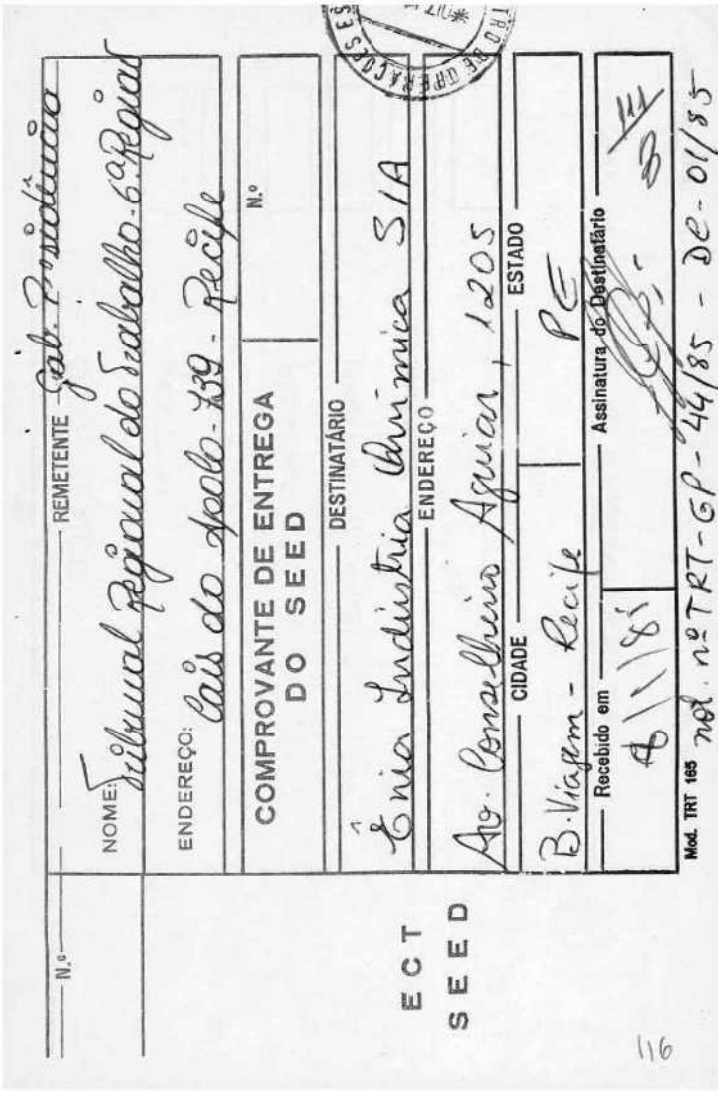 N.º
REMETENTE Gab. Presidência
NOME: Tribunal Regional do Trabalho - 6ª Região
ENDEREÇO: Cais do Apolo - 739 - Recife
ECT
SEED
COMPROVANTE DE ENTREGA
DO SEED
N.º
DESTINATÁRIO
Ênia Indústria Química S/A
ENDEREÇO
Av. Conselheiro Aguiar, 1205
CIDADE
ESTADO
B. Viagem - Recife
PE
Recebido em
Assinatura do Destinatário
Mod. TRT 165
not. nº TRT-GP-44/85 - DC-01/85
TRO DE OPERAÇÕES ES
116